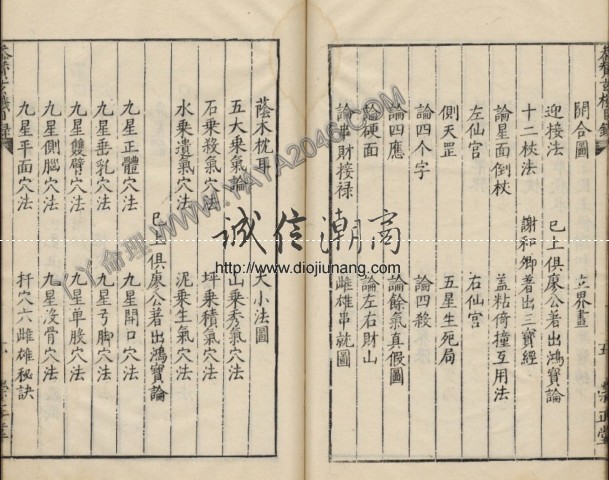 開合圖　立界畫
迎接法　已上俱廖公著出鴻寶論
十二杖法　謝和卿著出三寶經
論星面倒杖　蓋粘倚撞互用法
左仙宫　右仙宫
側天罡　五星生死局
論四个字　論四殺
論四應　論餘氣真假圖
硬面　論左右財山
論串財接禄　雌雄串就圖
五
崇正堂
蔭木枕耳　大小法圖
五大乘氣論　山乘秀氣穴法
石乘殺氣穴法　坪乘積氣穴法
水乘潰氣穴法　泥乘生氣穴法
已上俱廖公著出鴻寶論
九星正體穴法　九星開口穴法
九星垂乳穴法　九星弓脚穴法
九星雙臂穴法　九星單股穴法
九星側腦穴法　九星没骨穴法
九星平面穴法　扦穴六雌雄秘訣
誠信潮商
http://www.diojiunang.com
YY命理 WWW.YAYA2046.COM